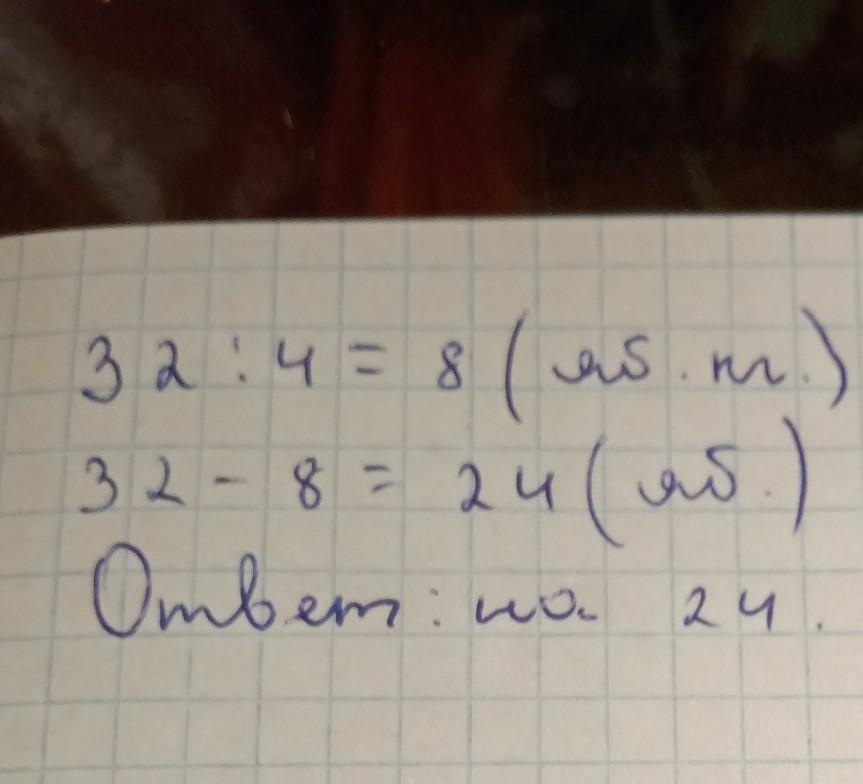 32 : 4 = 8 (яб. пл.)
32 - 8 = 24 (яб.)
Ответ: на 24.